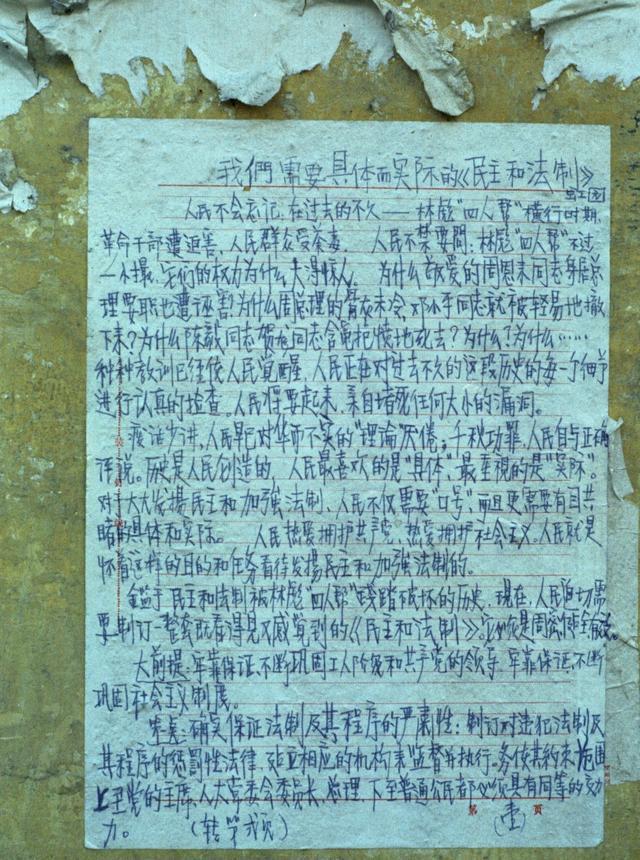 我們需要具体而实际的《民主和法制》
人民不会忘记,在过去的不久——林彪"四人帮"横行时期,
革命干部遭迫害,人民群众受荼毒. 人民不禁要問:林彪"四人帮"不过
一小撮,它们的权力为什么大得惊人. 为什么敬爱的周恩来同志身居总
理要职也遭诬害?为什么周总理的骨灰未冷,邓小平同志就被轻易地撤
下来?为什么陈毅同志贺龙同志含冤抱恨地死去?为什么?为什么……
种种教训已往使人民觉醒,人民正在对过去不久的这段历史的每一个细节
进行认真的检查。人民将要起来,亲自堵死任何大小的漏洞。
废话少讲,人民早已对华而不实的"理論"厌倦;千秋功罪,人民自有正确
评说。历史是人民创造的,人民最喜欢的是"具体",最重視的是"实际"。
对于大大发揚民主和加強法制,人民不仅需要"口号",而且更需要有目共
睹的具体和实际。 人民热爱拥护共产党,热爱拥护社会主义,人民就是
怀着这样的目的和任务看待发揚民主和加強法制的。
鉴于民主和法制被林彪"四人帮"践踏破坏的历史,现在,人民迫切需
要制订一整套既看得見又感覚到的《民主和法制》,它必须是周密健全
大前提:牢靠保证,不断巩固工人阶级和共产党的领导,牢靠保证,不断
巩固社会主义制度。
焦点:确实保证法制及其程序的严肃性;制订对违犯法制及
其程序的惩罚性法律,建立相应的机构来监督为执行.务使其约束范围
上至党的主席、人大常委会委员长、总理,下至普通公民都必须具有同等的效
力。 (转第弍頁)
第(壹)頁